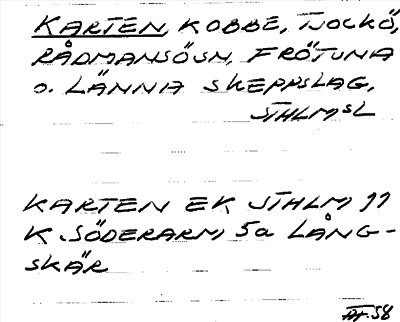 KARTEN, KOBBE, TJOCKÖ,
RÅDMANSÖSN, FRÖTUNA
O. LÄNNA SKEPPSLAG,
STHLMSL
KARTEN EK STHLM 11
K SÖDERARM 5a LÅNG-
SKÄR
58